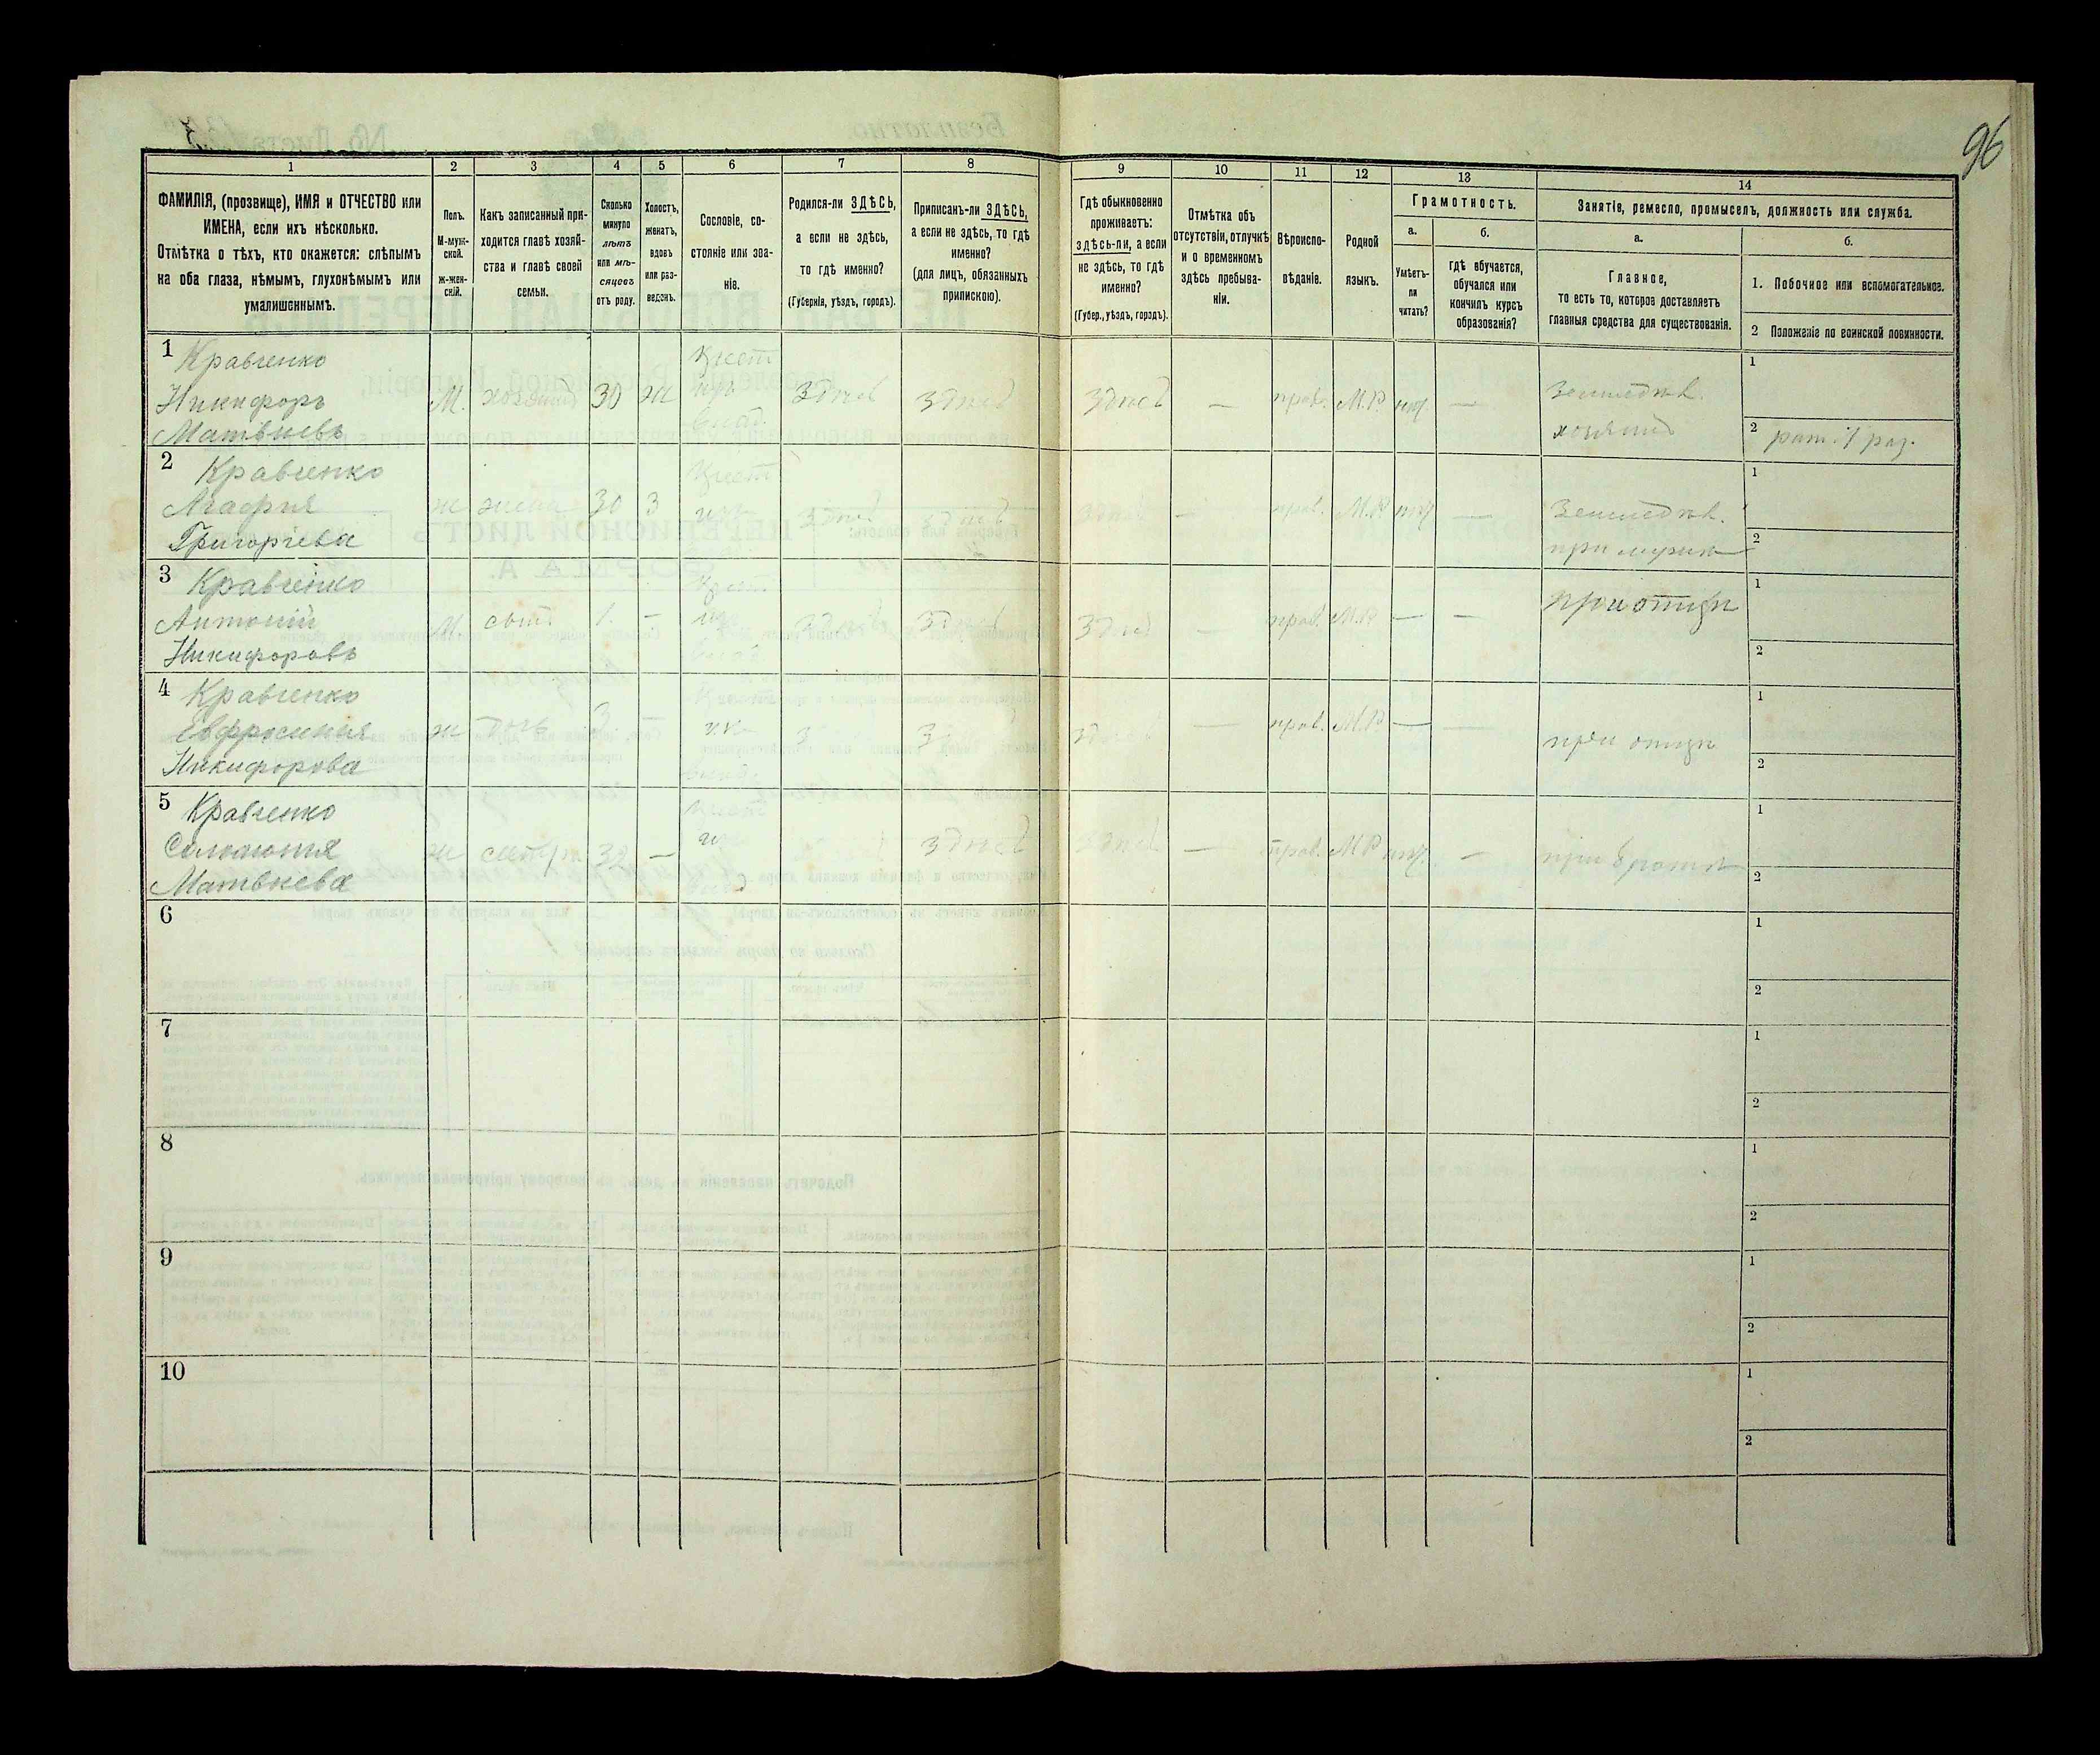 96
1
2
3
4
5
6
7
8
9
10
11
12
13
14
ФАМИЛІЯ, (прозвище), ИМЯ и ОТЧЕСТВО или
ИМЕНА, если ихъ нѣсколько.
Отмѣтка о тѣхъ, кто окажется: слѣпымъ
на оба глаза, нѣмымъ, глухонѣмымъ или
умалишеннымъ.
Полъ.
М-муж-
ской.
ж-жен-
скій.
Какъ записанный при-
ходится главѣ хозяй-
ства и главѣ своей
семьи.
Сколько
минуло
лѣтъ
или мѣ-
сяцевъ
отъ роду.
Холостъ,
женатъ,
вдовъ
или раз-
веденъ.
Сословіе, со-
стояніе или зва-
ніе.
Родился-ли ЗДѢСЬ,
а если не здѣсь,
то гдѣ именно?
(Губернія, уѣздъ, городъ).
Приписанъ-ли ЗДѢСЬ,
а если не здѣсь, то гдѣ
именно?
(для лицъ, обязанныхъ
припискою).
Гдѣ обыкновенно
проживаетъ:
здѣсь-ли, а если
не здѣсь, то гдѣ
именно?
(Губер., уѣздъ, городъ).
Отмѣтка объ
отсутствіи, отлучкѣ
и о временномъ
здѣсь пребыва-
ніи.
Вѣроиспо-
вѣданіе.
Родной
языкъ.
Грамотность.
а.
Умѣетъ-
ли
читать?
б.
гдѣ обучается,
обучался или
кончилъ курсъ
образованія?
Занятіе, ремесло, промыселъ, должность или служба.
а.
Главное,
то есть то, которое доставляетъ
главныя средства для существованія.
б.
1. Побочное или вспомогательное.
2 Положеніе по воинской повинности.
1 Кравченко
Никифоръ
Матвѣевъ
М. хозяинъ 30 ж
Крест
здѣсь здѣсь здѣсь — прав. М.Р. нѣт —
Земледѣл.
хозяинъ
1
2 рат. 1 раз.
2 Кравченко
Агафія
Григоріева
ж жена 30 з
Крест
здѣсь здѣсь здѣсь — прав. М.Р. нѣт —
Земледѣл.
при мужѣ
1
2
3 Кравченко
Антоній
Никифоровъ
М сынъ 1. —
Крест
здѣсь здѣсь здѣсь — прав. М.Р. — —
при отцѣ
1
2
4 Кравченко
Евфросинія
Никифорова
ж дочь 3 —
— прав. М.Р. — —
при отцѣ
1
2
5 Кравченко
Соломонія
Матвѣева
ж сестра 32 —
здѣсь здѣсь — прав. М.Р. нѣт —
при братѣ
1
2
6
1
2
7
1
2
8
1
2
9
1
2
10
1
2